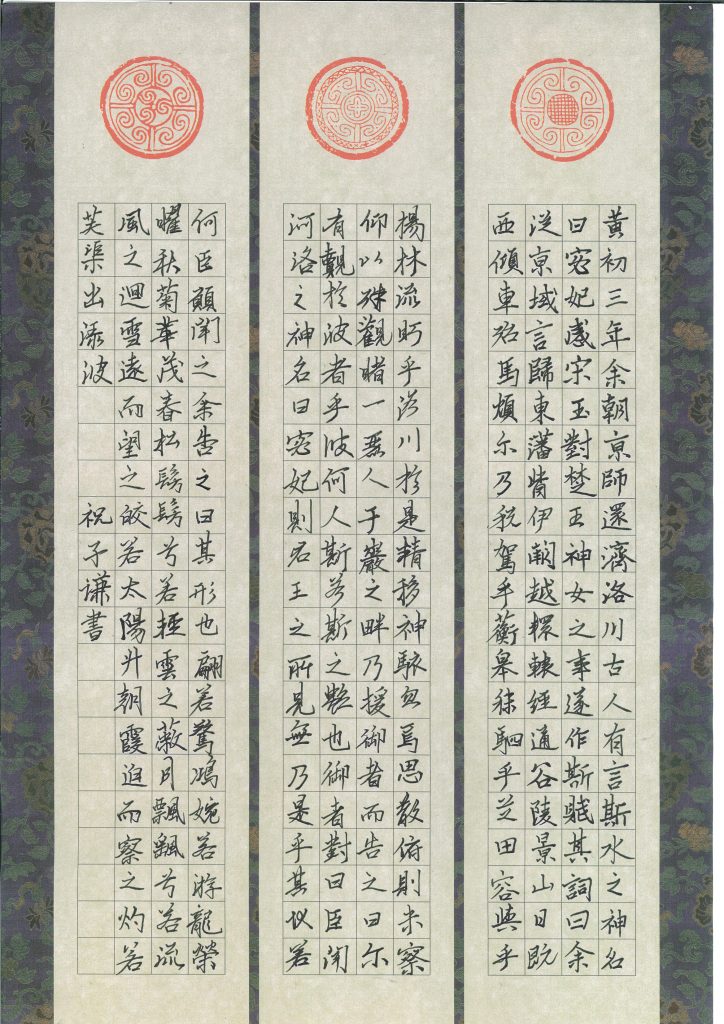 黄初三年余朝京師還濟洛川古人有言斯水之神名
曰宓妃感宋玉對楚王神女之事遂作斯賦其詞曰余
從京域言歸東藩背伊闕越轘轅經通谷陵景山日既
西傾車殆馬煩尔乃税駕乎蘅皋秣駟乎芝田容與乎
楊林流眄乎洛川於是精移神駭忽焉思散俯則未察
仰以殊觀睹一麗人于巖之畔乃援御者而告之曰尔
有覿於彼者乎彼何人斯若斯之艷也御者對曰臣聞
河洛之神名曰宓妃則君王之所見無乃是乎其狀若
何臣願聞之余告之曰其形也翩若驚鴻婉若游龍榮
曜秋菊華茂春松髣髴兮若輕雲之蔽月飄飄兮若流
風之迴雪遠而望之皎若太陽升朝霞迫而察之灼若
芙渠出渌波 祝子謙書